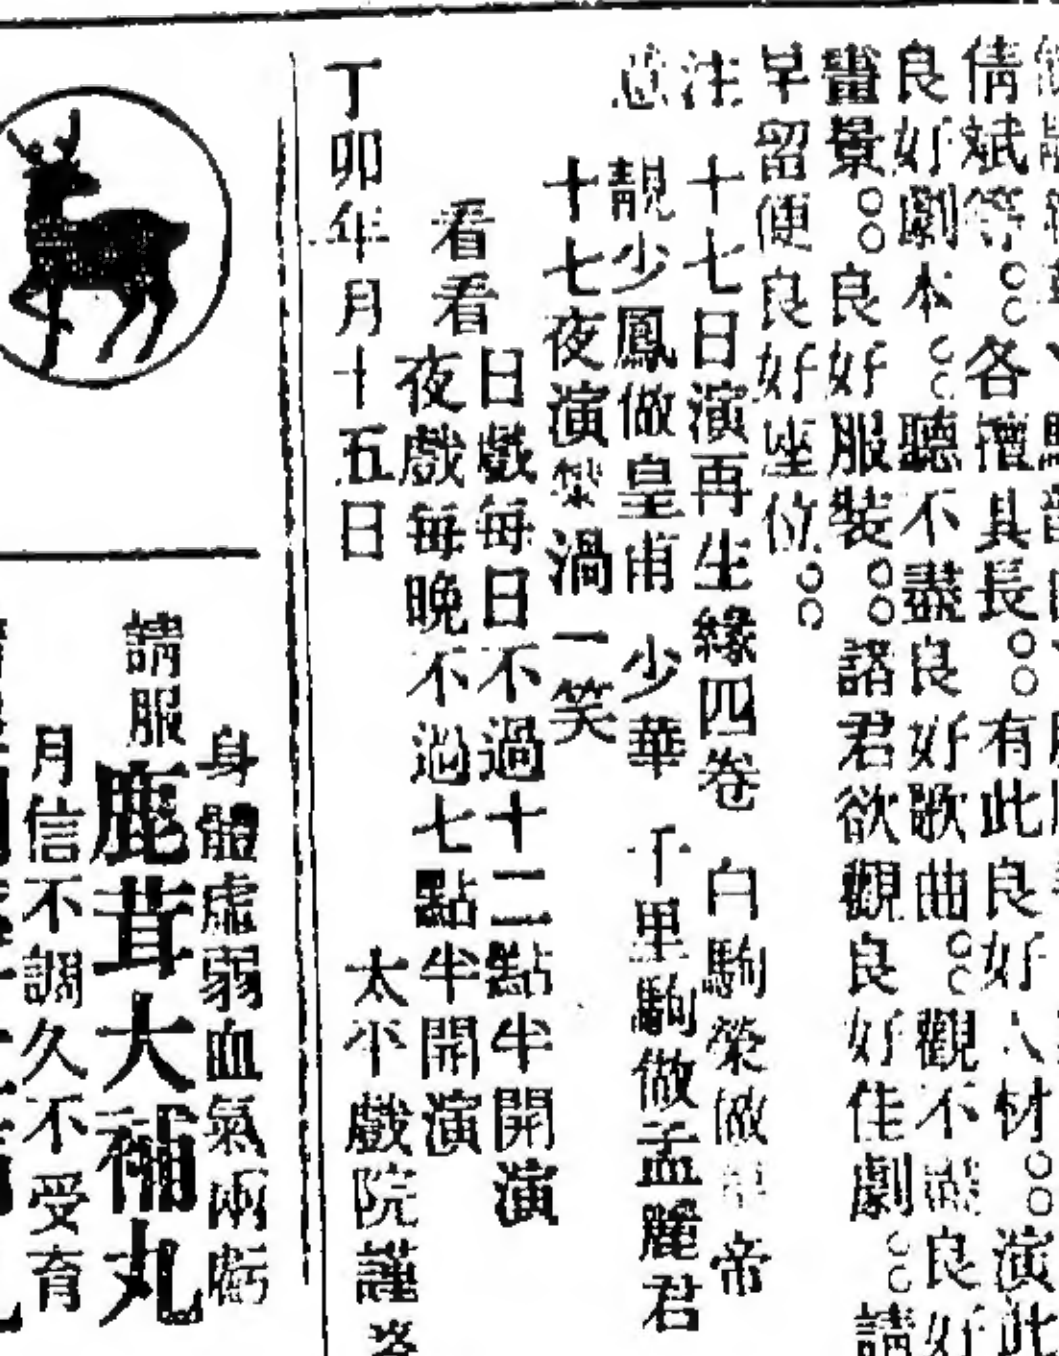 倩斌等。。各擅具長。。有此良好人材。。演此
良好劇本。。聽不盡良好歌曲。。觀不盡良好
畫景。。良好服裝。。諸君欲觀良好佳劇。。請
早留便良好座位。。
注 十七日演再生緣四卷 白駒榮做皇帝
意 靚少鳳做皇甫 少華 千里駒做孟麗君
十七夜演禁渦一笑
看看
日戲每日不過十二點半開演
夜戲每晚不過七點半開演
太平戲院謹
丁卯年 月十五日
身體虛弱血氣兩虧
請服鹿茸大補丸
月信不調久不受育